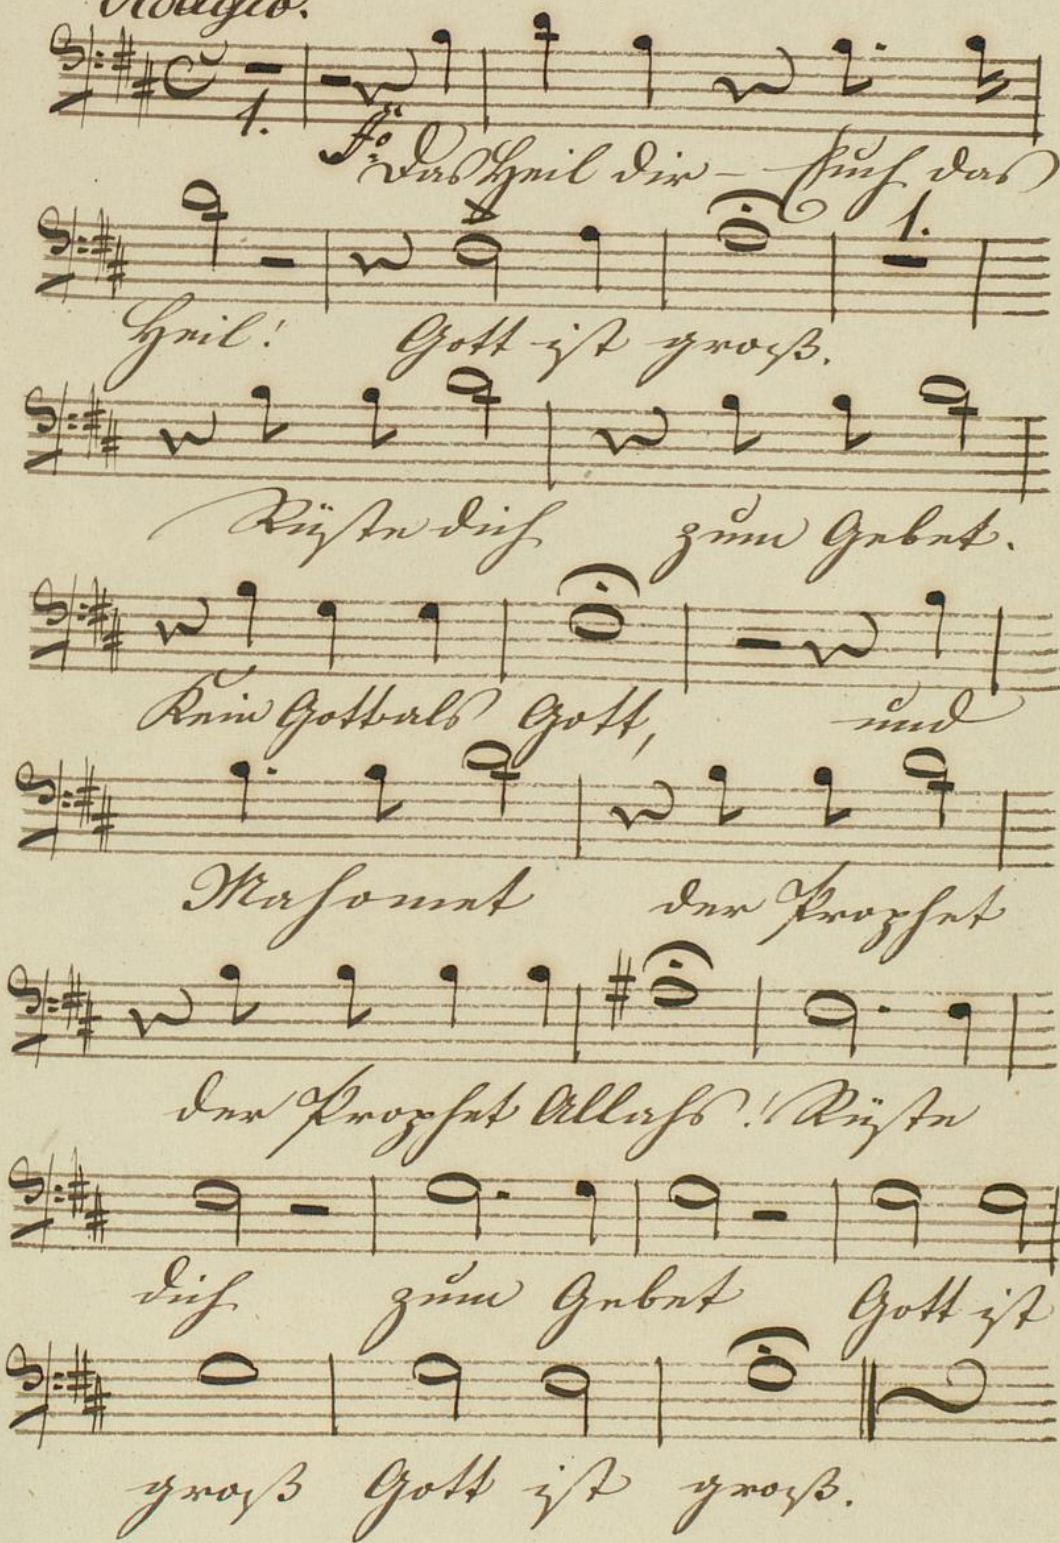 Adagio.
1.
fo: Das Heil dir – Such das
1.
Heil! Gott ist groß.
Rüste dich zum Gebet.
Kein Gott als Gott, und
Mahomet der Prophet
der Prophet Allahs! Rüste
dich zum Gebet Gott ist
groß Gott ist groß.